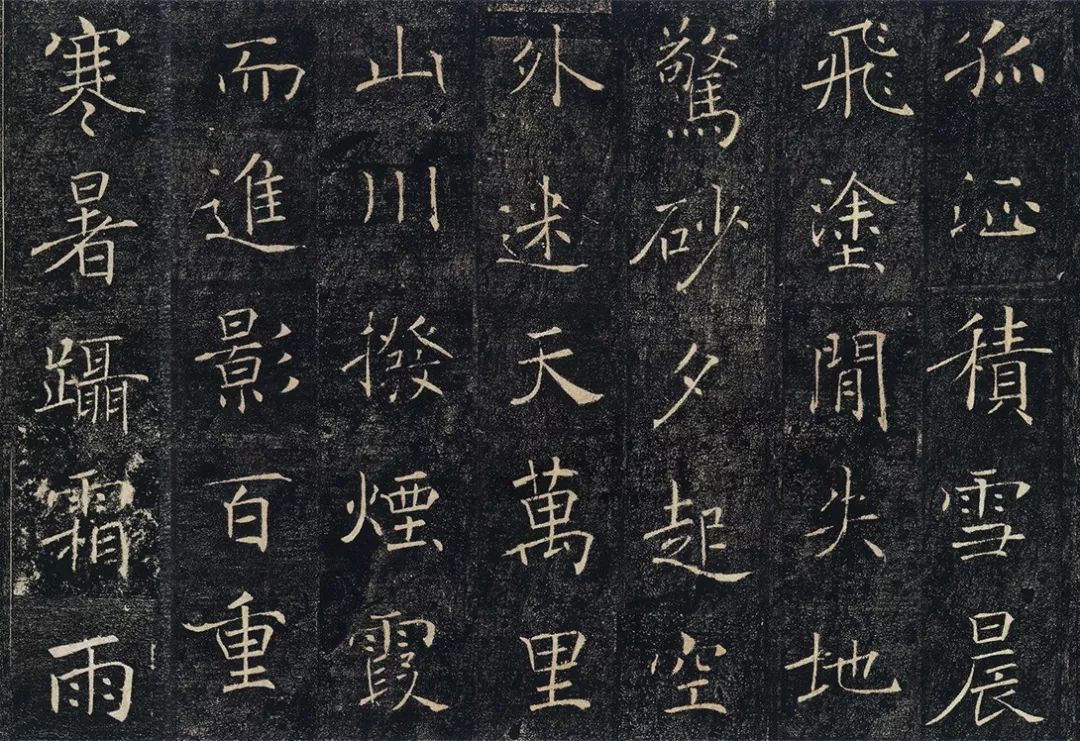 孤征積雪晨
飛塗閒失地
驚砂夕起空
外迷天萬里
山川撥煙霞
而進影百重
寒暑躡霜雨